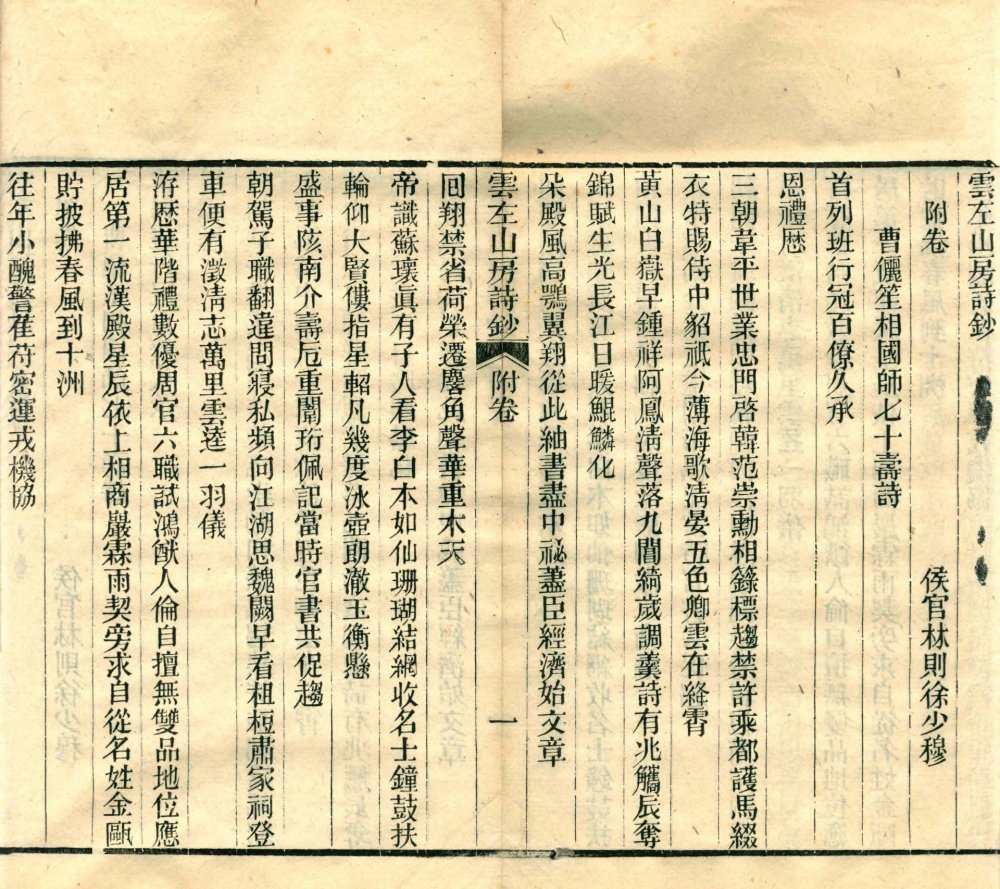 雲左山房詩鈔
附卷　侯官林則徐少穆
曹儷笙相國師七十壽詩
首列班行冠百僚久承
恩禮歷
三朝韋平世業忠門啓韓范崇勳相籙標趨禁許乘都護馬綴
衣特賜侍中貂祗今薄海歌淸晏五色卿雲在絳霄
黃山白嶽早鍾祥阿鳳淸聲落九閶綺歲調羹詩有兆觿辰奪
錦賦生光長江日暖鯤鱗化
朵殿風高鶚翼翔從此紬書盡中祕藎臣經濟始文章
雲左山房詩鈔　附卷　一
回翔禁省荷榮遷麐角聲華重木天
帝識蘇瓌眞有子人看李白本如仙珊瑚結網收名士鐘鼓扶
輪仰大賢僂指星軺凡幾度泳壺朗澈玉衡懸
盛事陔南介壽卮重闈珩佩記當時官書共促趨
朝駕子職翻違問寢私頻向江湖思魏闕早看袓桓肅家祠登
車便有澂淸志萬里雲逵一羽儀
洊歷華階禮數優周官六職試鴻猷人倫自擅無雙品地位應
居第一流漢殿星辰依上相商巖霖雨契旁求自從名姓金甌
貯披拂春風到十洲
往年小醜警萑苻密運戎機協